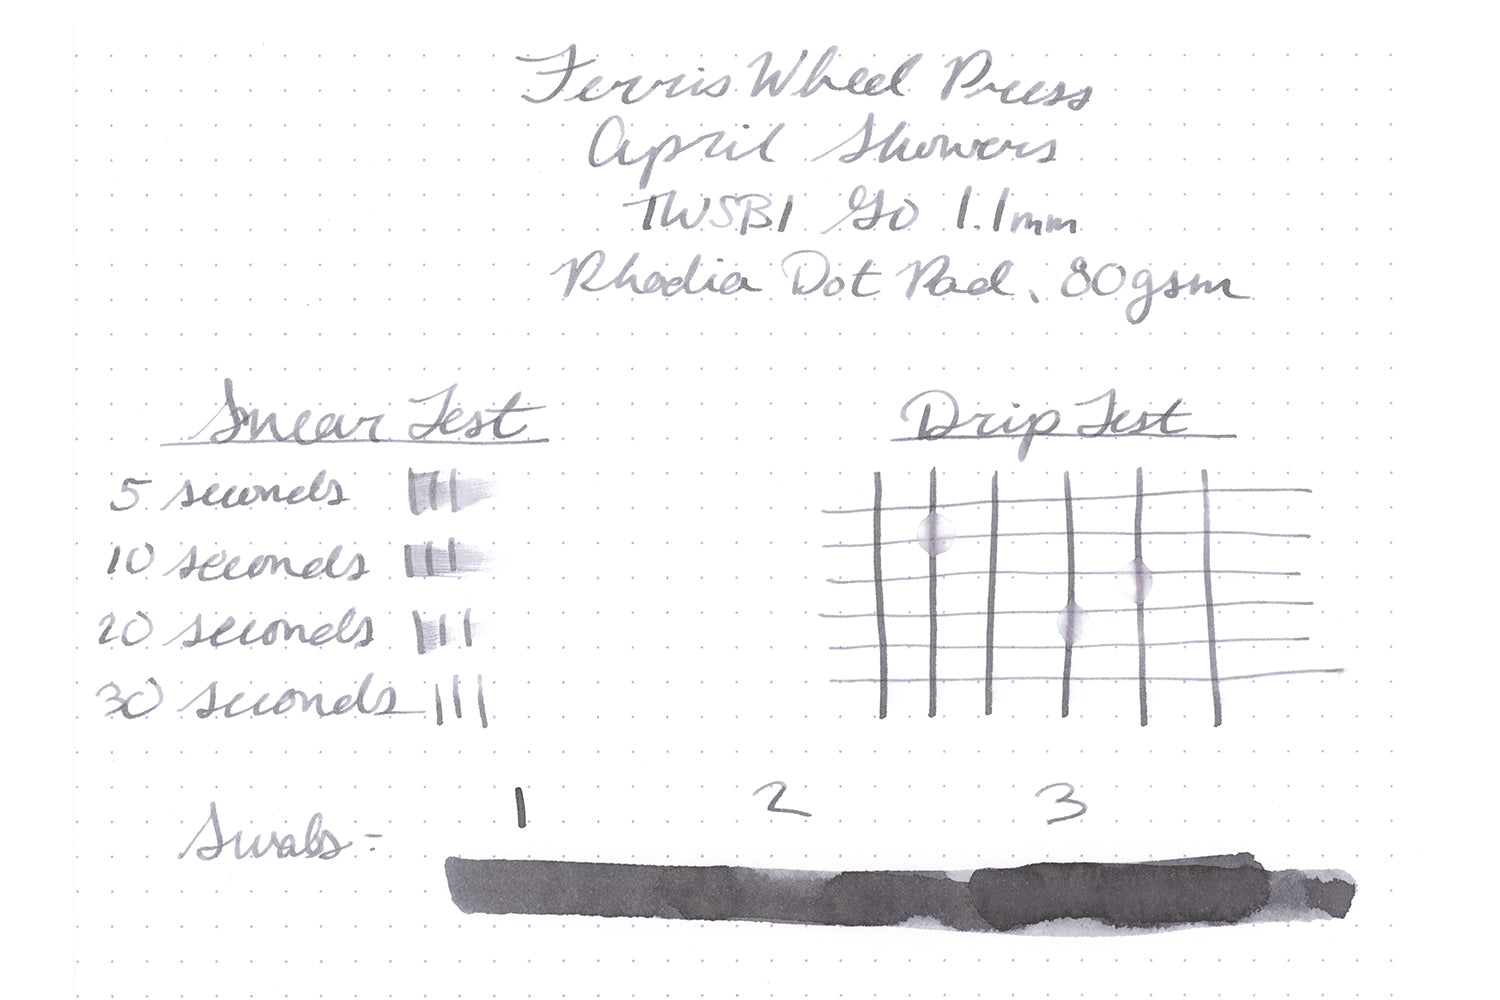 Ferris Wheel Press
April Showers
TWSBI GO 1.1mm
Rhodia Dot Pad, 80gsm
Smear Test
5 seconds
10 seconds
20 seconds
30 seconds
Drip Test
Swabs - 1 2 3